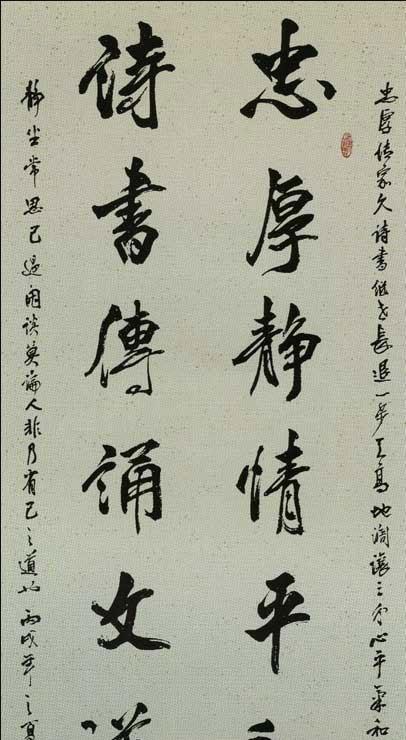 忠厚传家久诗书继世长退一步天高地阔让三分心平气和
忠厚静情平
诗书传诵文
静坐常思己过闲谈莫论人非乃省己之道也丙戌年之夏